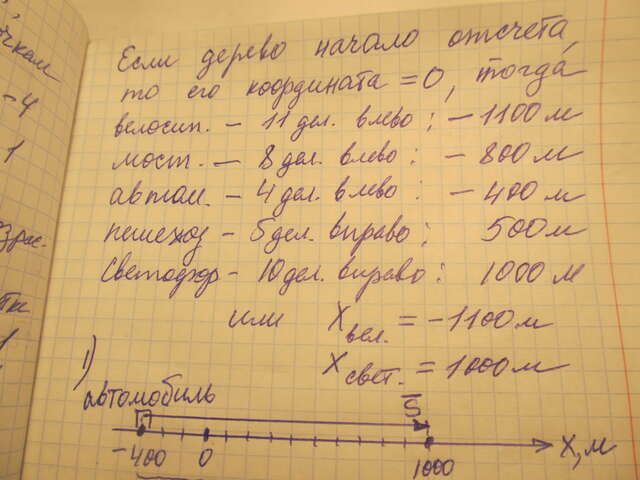 Если дерево начало отсчета,
то его координата = 0, тогда
велосип. – 11 дел. влево: – 1100 м
мост. – 8 дел. влево: – 800 м
автом. – 4 дел. влево: – 400 м
пешеход – 5 дел. вправо: 500 м
Светофор – 10 дел. вправо: 1000 м
или Xвел. = – 1100 м
Xсвет. = 1000 м
1)
автомобиль S
– 400 0 1000 X, м
– 4
1